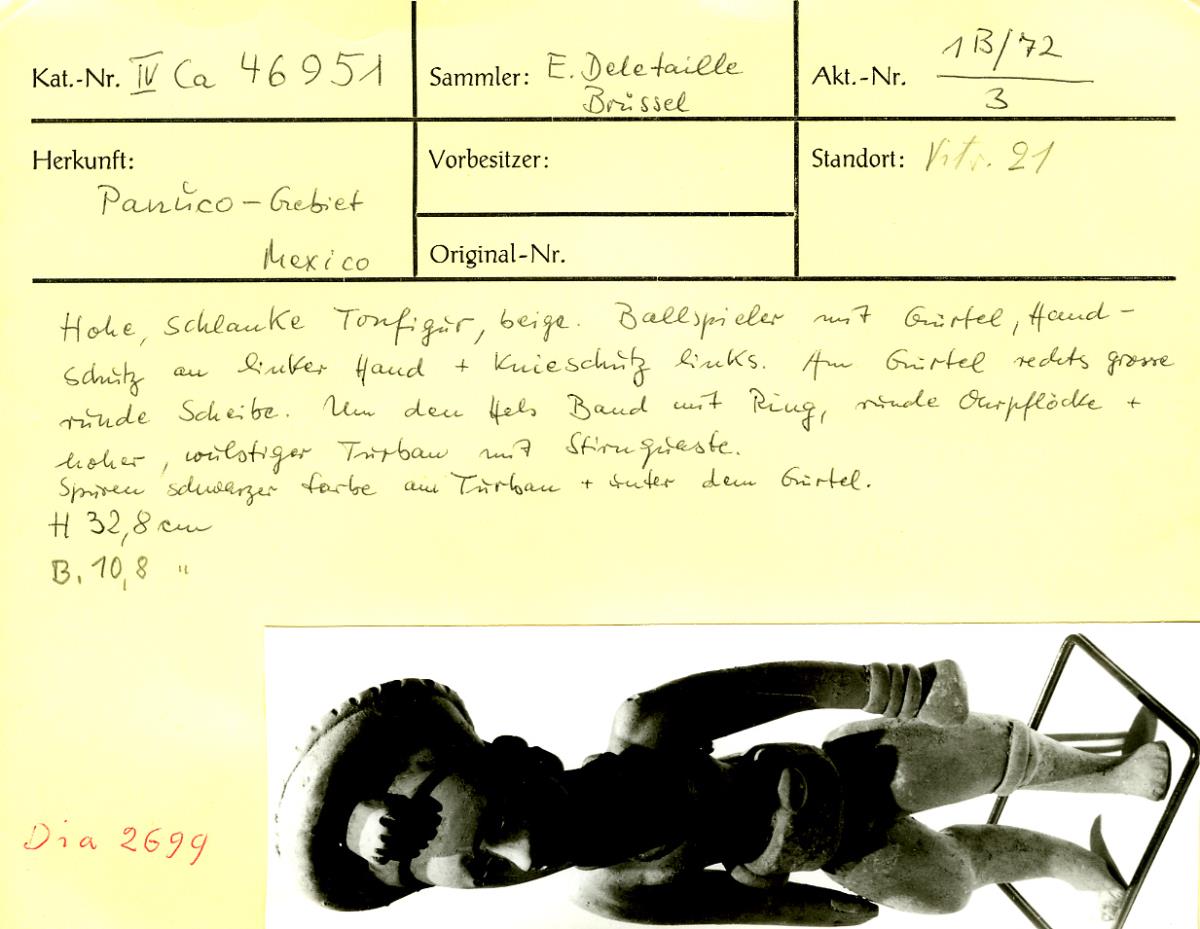 Kat.-Nr. IV Ca 46951
Sammler: E. Deletaille
Brüssel
Akt.-Nr. 1B/72
3
Herkunft:
Panŭco - Gebiet
Mexico
Vorbesitzer:
Original-Nr.
Standort: Vitr. 21
Hohe, schlanke Tonfigŭr, beige. Ballspieler mit Gürtel, Hand-
schŭtz an linker Hand + Knieschŭtz links. Am Gürtel rechts grosse
rŭnde Scheibe. Um den Hals Band mit Ring, rŭnde Ohrpflöcke +
hoher, wŭlstiger Tŭrban mit Stirnqŭaste.
Spŭren schwarzer Farbe am Tŭrban + ŭnter dem Gürtel.
H 32,8 cm
B. 10,8 "
Dia 2699